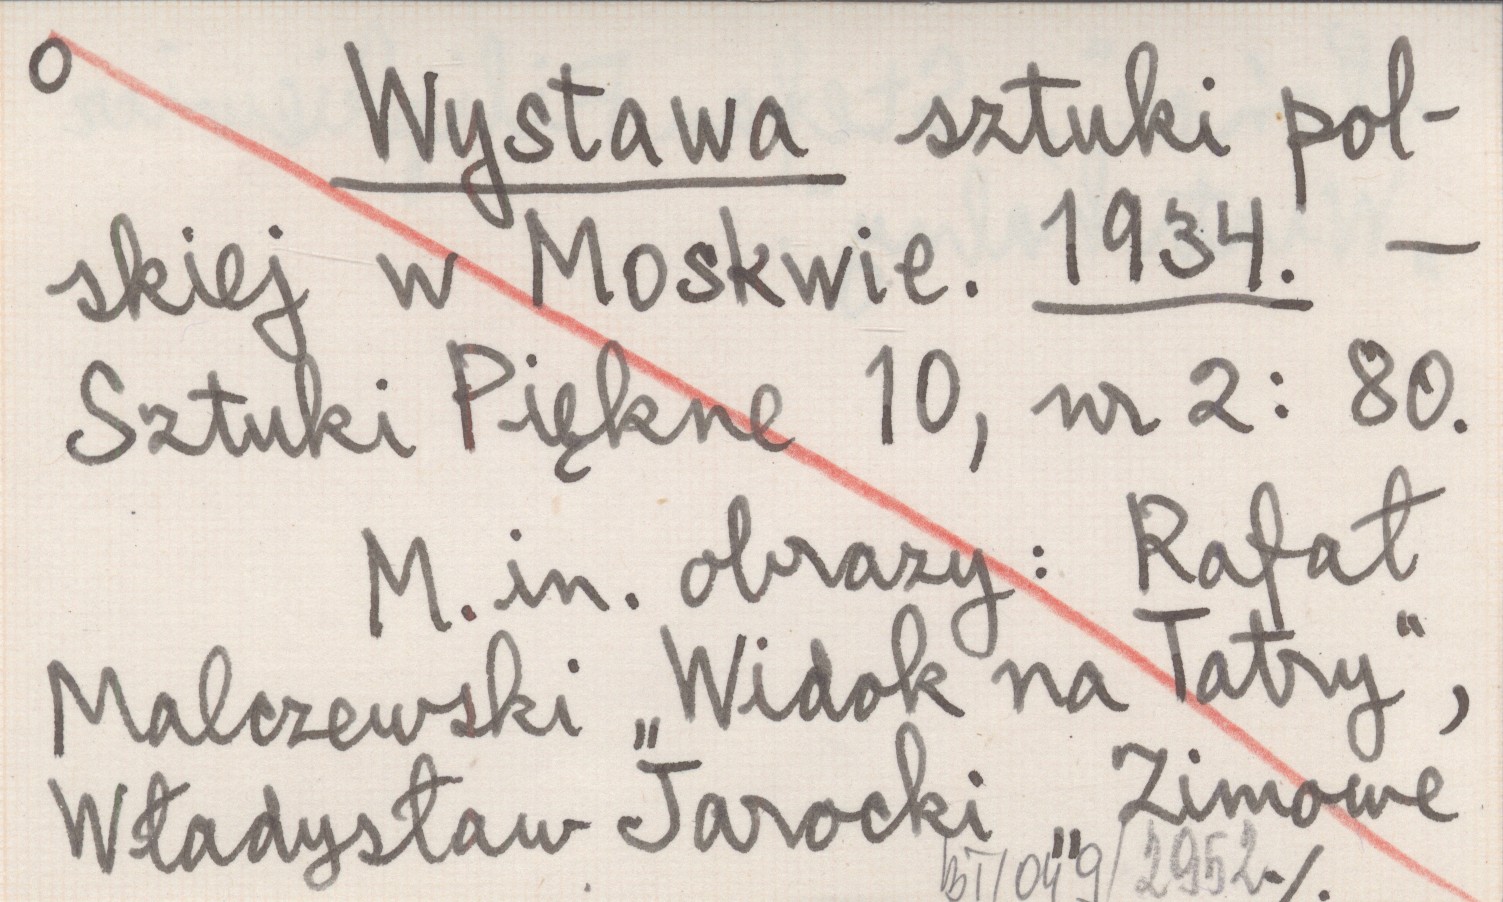 O Wystawa sztuki pol-
skiej w Moskwie. 1934. —
Sztuki Piękne 10, nr 2: 80.
M. in. obrazy: Rafał
Malczewski „Widok na Tatry“,
Władysław Jarocki „Zimowe
BT/049/2952 ./.